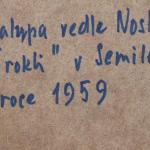 alupa vedle Nosk
rokli" v Semile
roce 1959